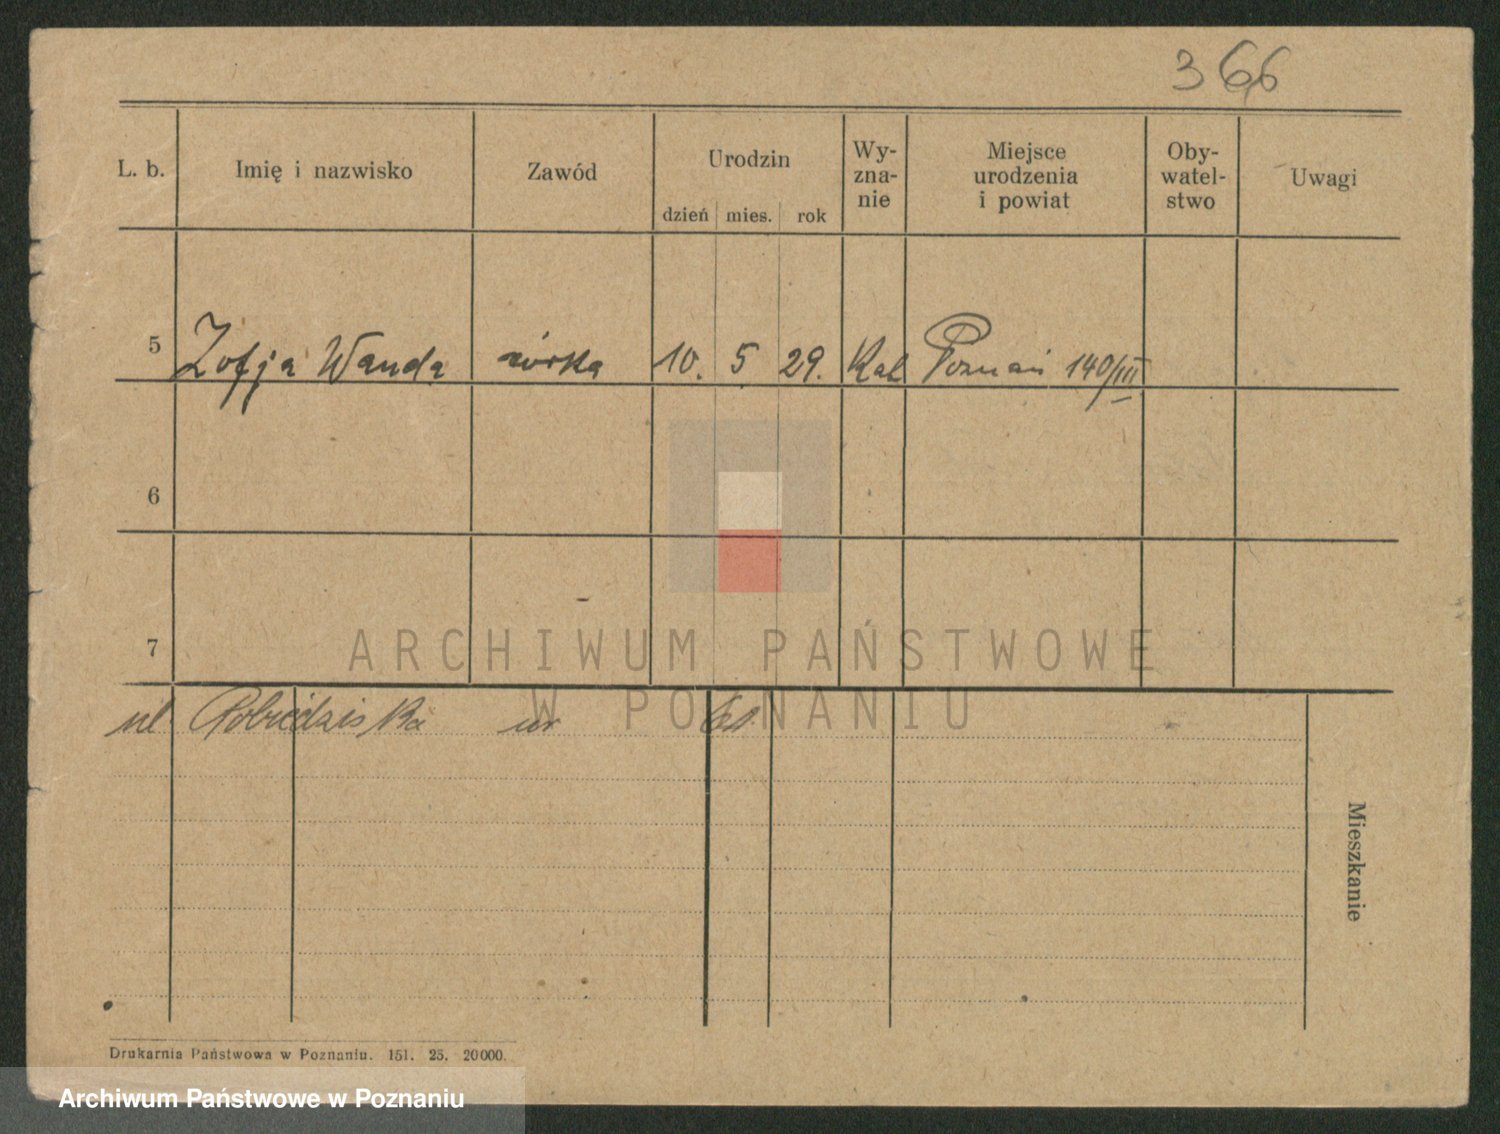 366
L. b. Imię i nazwisko Zawód Urodzin dzień mies. rok Wy-zna-nie Miejsce urodzenia i powiat Oby-watel-stwo Uwagi
5 Zofja Wanda córka 10. 5 29. Kat Poznań 140/III
6
7
ul. Pobiedziska nr
Mieszkanie
Drukarnia Państwowa w Poznaniu. 151. 25. 20000.
ARCHIWUM PAŃSTWOWE
W POZNANIU
Archiwum Państwowe w Poznaniu